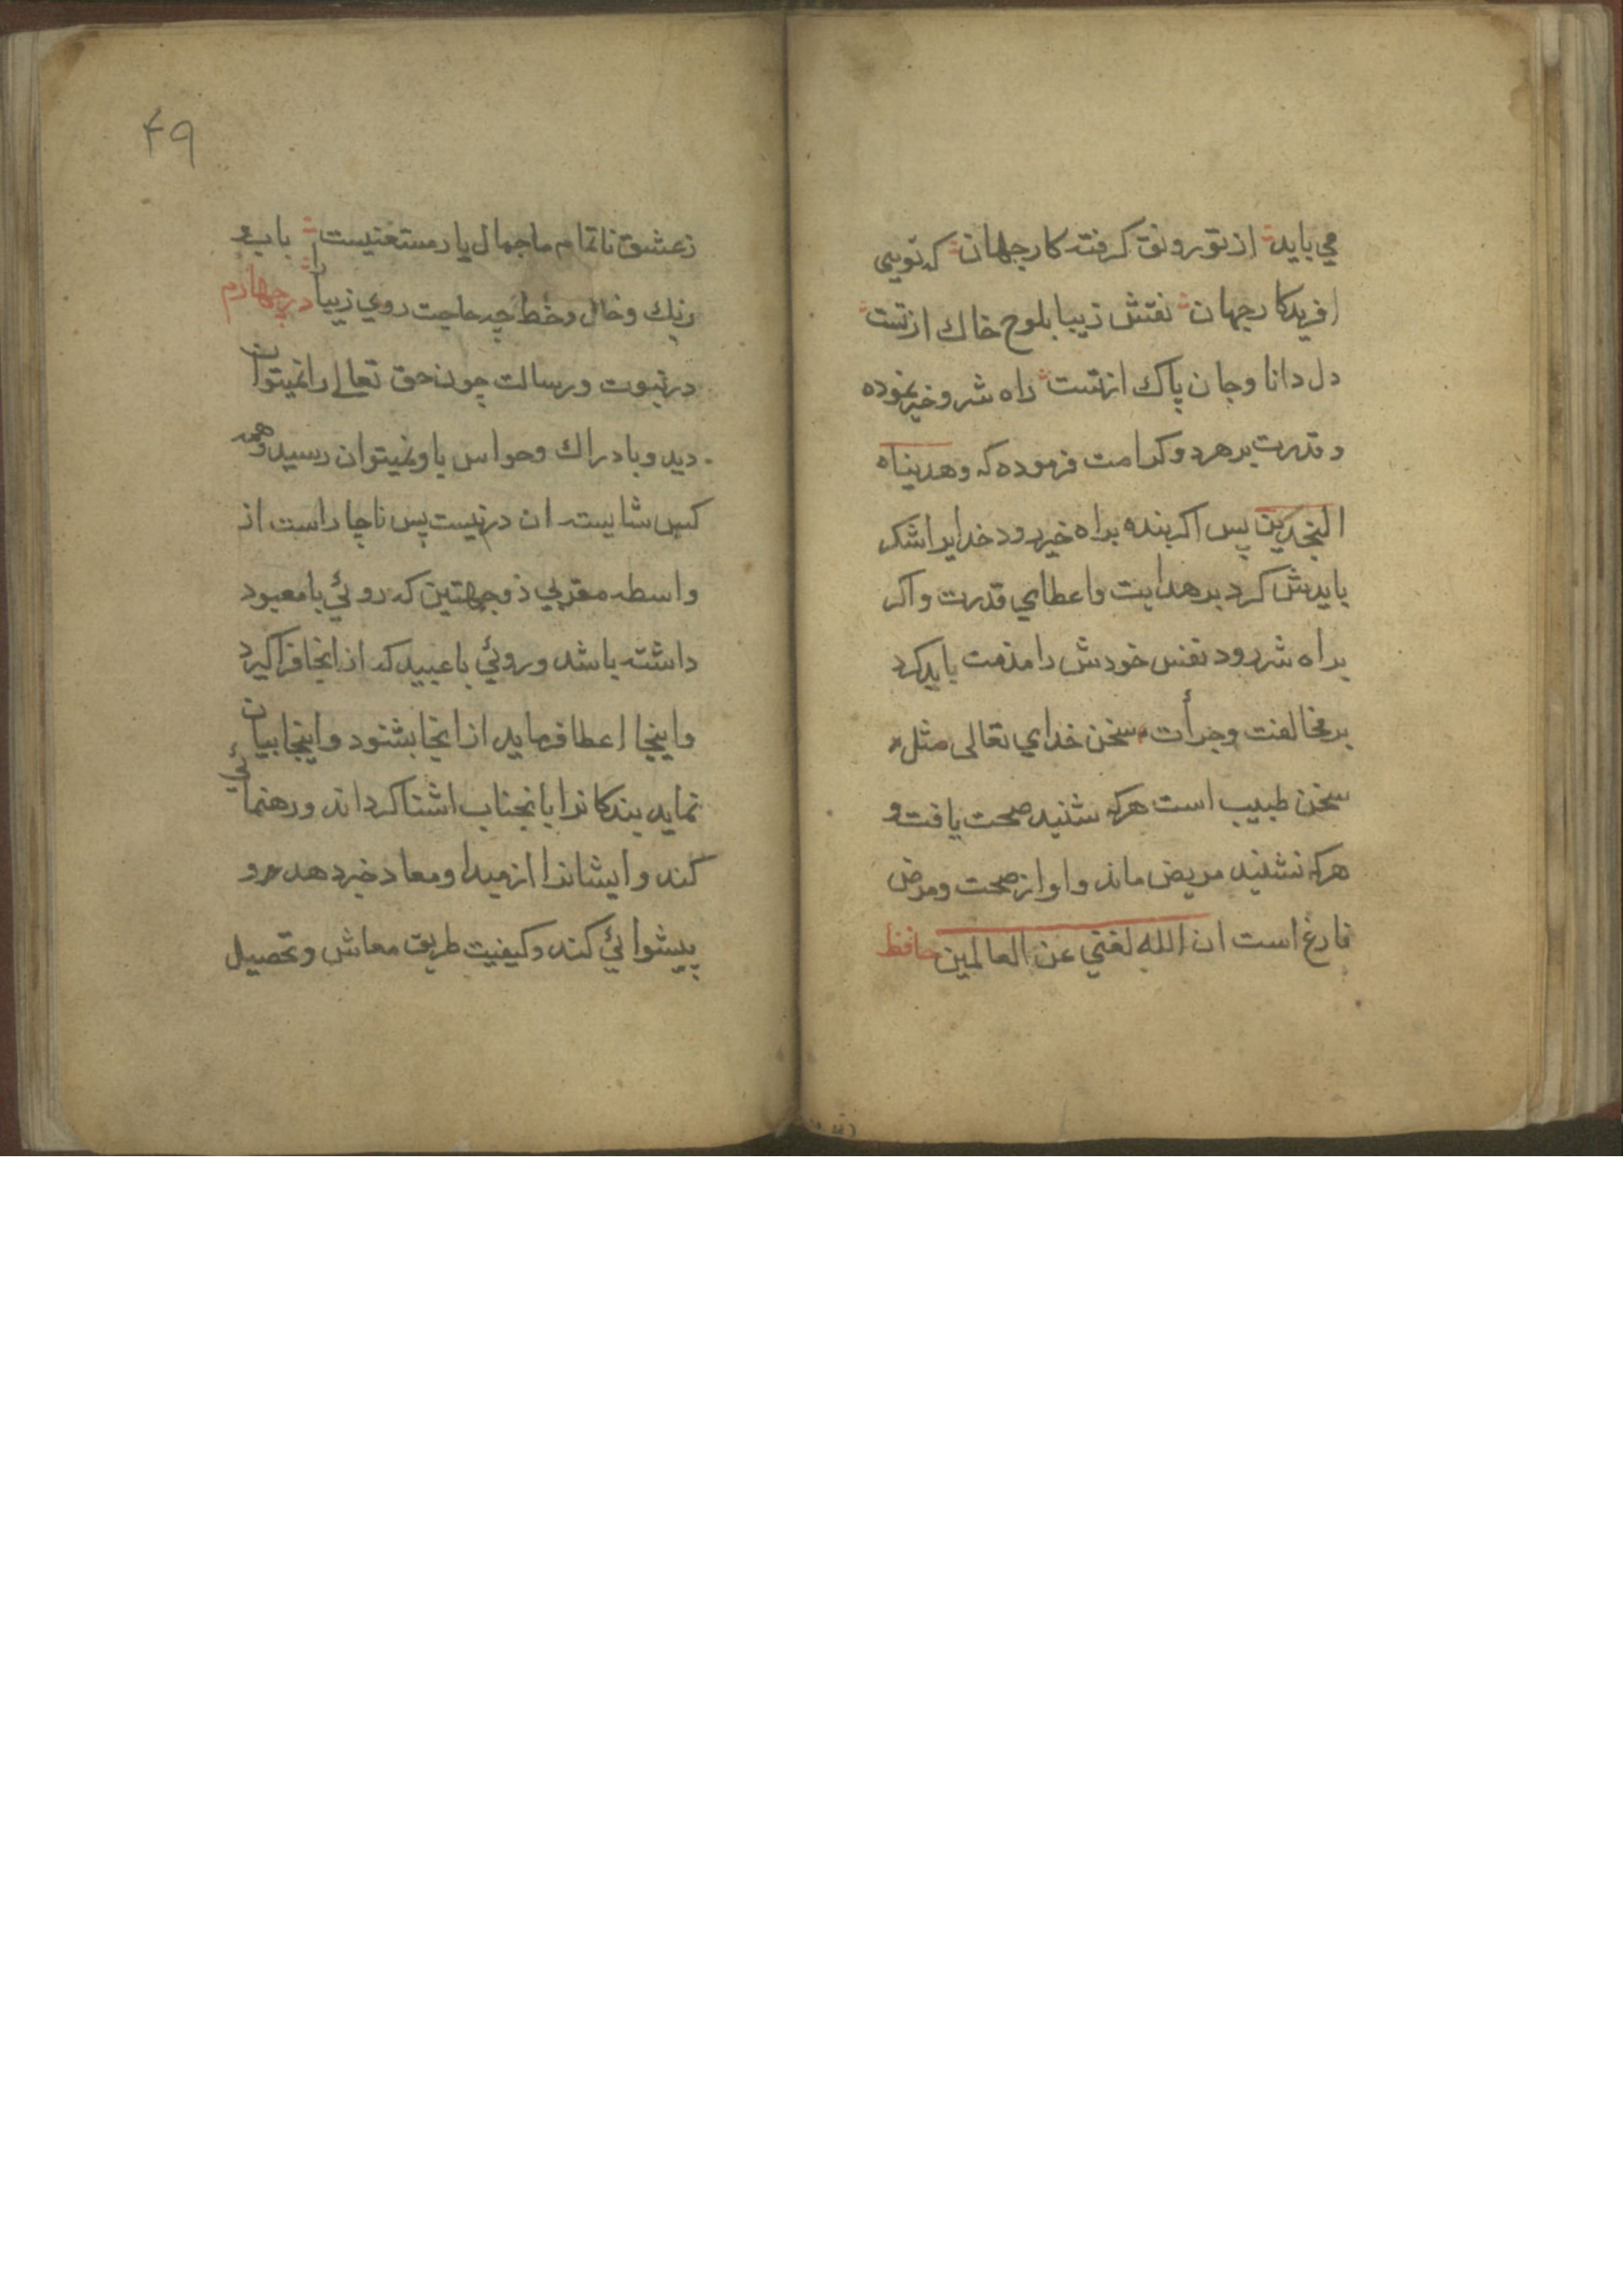 مي بايد از تو رونق كرفته كار جهان كه تويي
افريدكار جهان نقش زيبا بلوح خاك از تست
دل دانا و جان پاك از تست راه شر و خير نموده
و قدرت بر هر دو كرامت فرموده كه وهديناه
النجدين پس اكر بنده براه خير رود خدايرا شكر
بايدش كرد بر هدايت و اعطاي قدرت و اكر
براه شر رود نفس خودش را مذمت بايد كرد
بر مخالفت و جرأت سخن خداي تعالى مثل
سخن طبيب است هركه شنيد صحت يافت و
هركه نشنيد مريض ماند و او از صحت و مرض
فارغ است ان الله لغني عن العالمين حافظ
۴۹
ز عشق ناتمام ما جمال يار مستغنيست باب
برنك و خال و خط چه حاجت روي زيبا را در چهارم
در نبوت و رسالت چون حق تعالي را نميتوان
ديد و با دراك و حواس باو نميتوان رسيد و همه
كس شايسته ان در نيست پس ناچار است از
واسطه مقربي ذو جهتين كه روئي با معبود
داشته باشد و روئي با عبيد كه از انجا فرا كيرد
و اينجا اعطا فرمايد از انجا بشنود و اينجا بيان
نمايد بندكانرا بانجناب اشنا كرداند و رهنمائي
كند و ايشانرا از مبدا و معاد خبر دهد و
پيشوائي كند و كيفيت طريق معاش و تحصيل